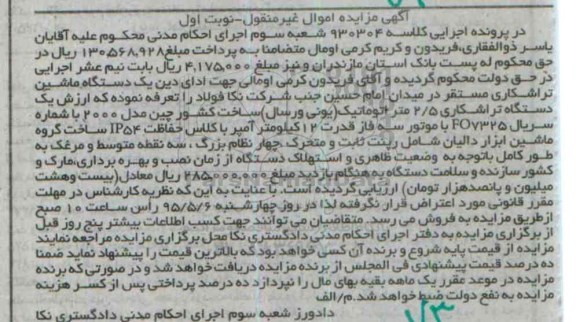 آگهی مزایده اموال غیرمنقول-نوبت اول
در پرونده اجرایی کلاسه ۹۳۰۳۰۴ شعبه سوم اجرای احکام مدنی محکوم علیه آقایان
یاسر ذوالفقاری،فریدون و کریم کرمی اومال متضامنا به پرداخت مبلغ۱۳۰،۵۶۸،۹۲۸ ریال در
حق محکوم له پست بانک استان مازندران و نیز مبلغ ۴،۱۷۵،۰۰۰ ریال بابت نیم عشر اجرایی
در حق دولت محکوم گردیده و آقای فریدون کرمی اومالی جهت ادای دین یک دستگاه ماشین
تراشکاری مستقر در میدان امام حسین جنب شرکت نکا فولاد را تعرفه نموده که ارزش یک
دستگاه تراشکاری ۲/۵ متر اتوماتیک(یونی ورسال)ساخت کشور چین مدل ۲۰۰۰ با شماره
سریال FO۷۳۲۵ با موتور سه فاز قدرت ۱۲کیلومتر آمپر با کلاس حفاظت IP۵۴ ساخت گروه
ماشین ابزار دالیان شامل رینت ثابت و متحرک،چهار نظام بزرگ ، سه نقطه متوسط و مرغک به
طور کامل باتوجه به وضعیت ظاهری و استهلاک دستگاه از زمان نصب و بهره برداری،مارک و
کشور سازنده و سلامت دستگاه به هنگام بازدید مبلغ ۲۸۵،۰۰۰،۰۰۰ ریال معادل(بیست وهشت
میلیون و پانصدهزار تومان) ارزیابی گردیده است. با عنایت به این که نظریه کارشناس در مهلت
مقرر قانونی مورد اعتراض قرار نگرفته لذا در روز چهارشنبه ۹۵/۵/۶ رأس ساعت ۱۰ صبح
ازطریق مزایده به فروش می رسد. متقاضیان می توانند جهت کسب اطلاعات بیشتر پنج روز قبل
از برگزاری مزایده به دفتر اجرای احکام مدنی دادگستری نکا محل برگزاری مزایده مراجعه نمایند
مزایده از قیمت پایه شروع و برنده آن کسی خواهد بود که بالاترین قیمت را پیشنهاد نماید ضمنا
ده درصد قیمت پیشنهادی فی المجلس از برنده مزایده دریافت خواهد شد و در صورتی که برنده
مزایده در موعد مقرر یک ماهه بقیه بهای مال را نپردازد ده درصد پرداختی پس از کسر هزینه
مزایده به نفع دولت ضبط خواهد شد.م/الف
دادورز شعبه سوم اجرای احکام مدنی دادگستری نکا